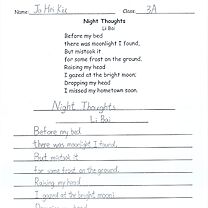 Name: Jo Hei Kee Class: 3A
Night Thoughts
Li Bai
Before my bed
there was moonlight I found,
But mistook it
for some frost on the ground.
Raising my head
I gazed at the bright moon;
Dropping my head
I missed my hometown soon.
Night Thoughts
Li Bai
Before my bed
there was moonlight I found,
But mistook it
for some frost on the ground.
Raising my head
I gazed at the bright moon;
Dropping my head